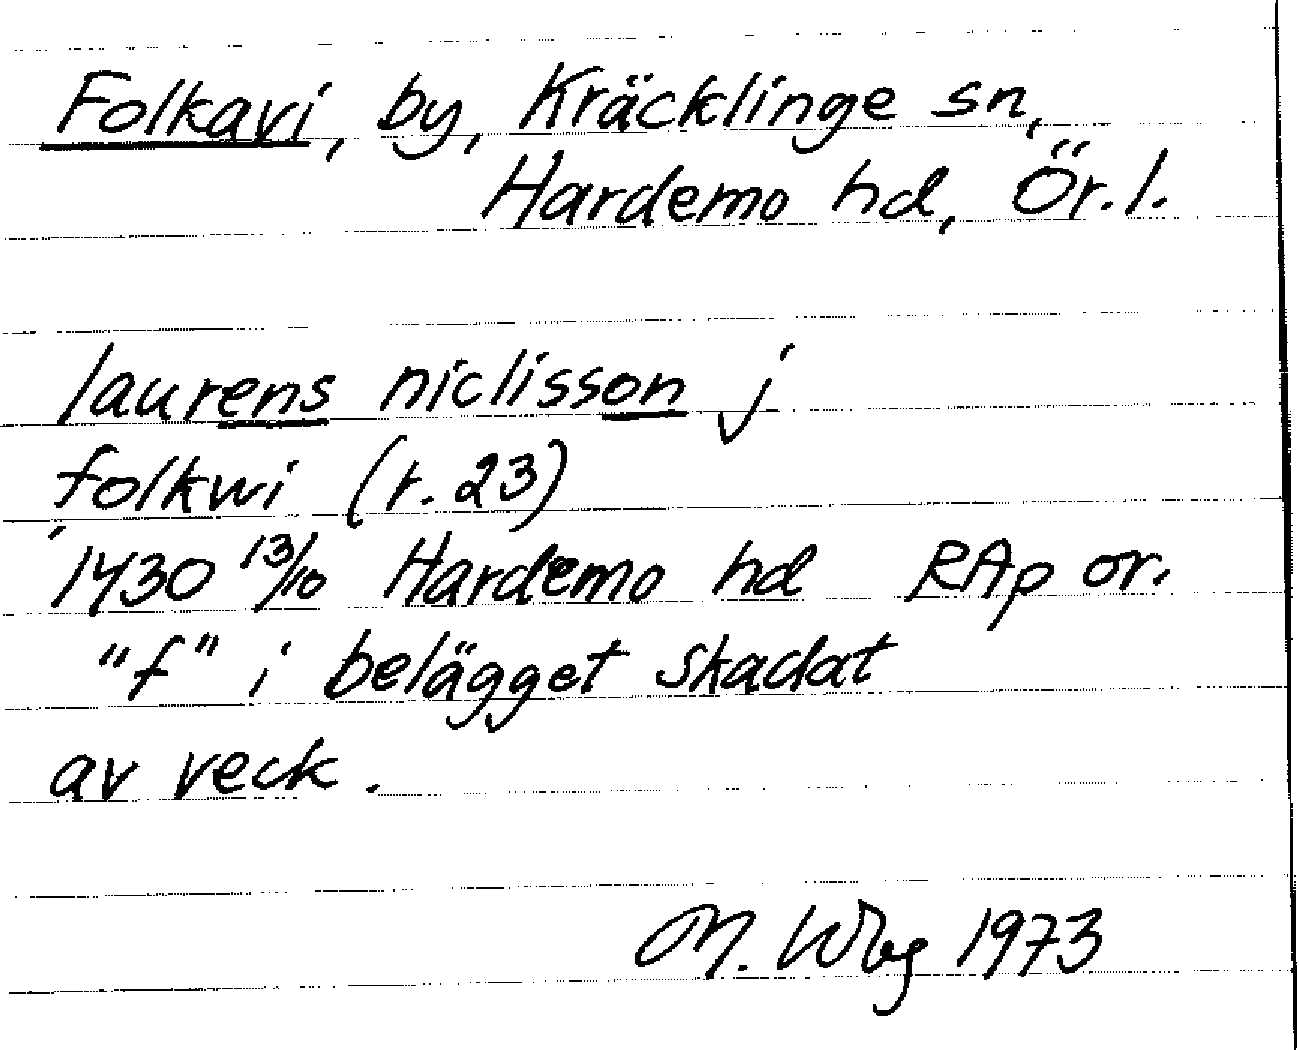 Folkavi, by, Kräcklinge sn,
Hardemo hd, Ör.l.
laurens niclisson j
folkwi (r. 23)
1430 13/10 Hardemo hd RAp or.
"f" i belägget skadat
av veck.
M. Wbg 1973